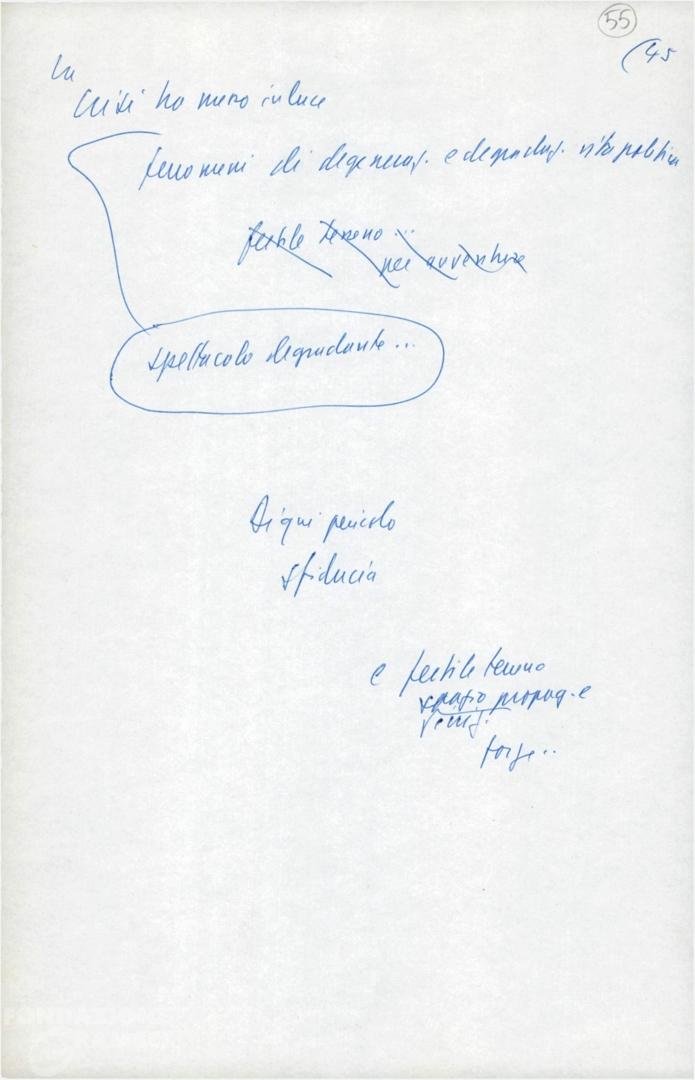 55
(45
La
crisi ha messo in luce
fenomeni di degeneraz. e degradaz. vita politica
fertile terreno...
per avventure
spettacolo degradante...
Di qui pericolo
sfiducia
e fertile terreno
spazio propag. e
forze..
FONDAZIONE